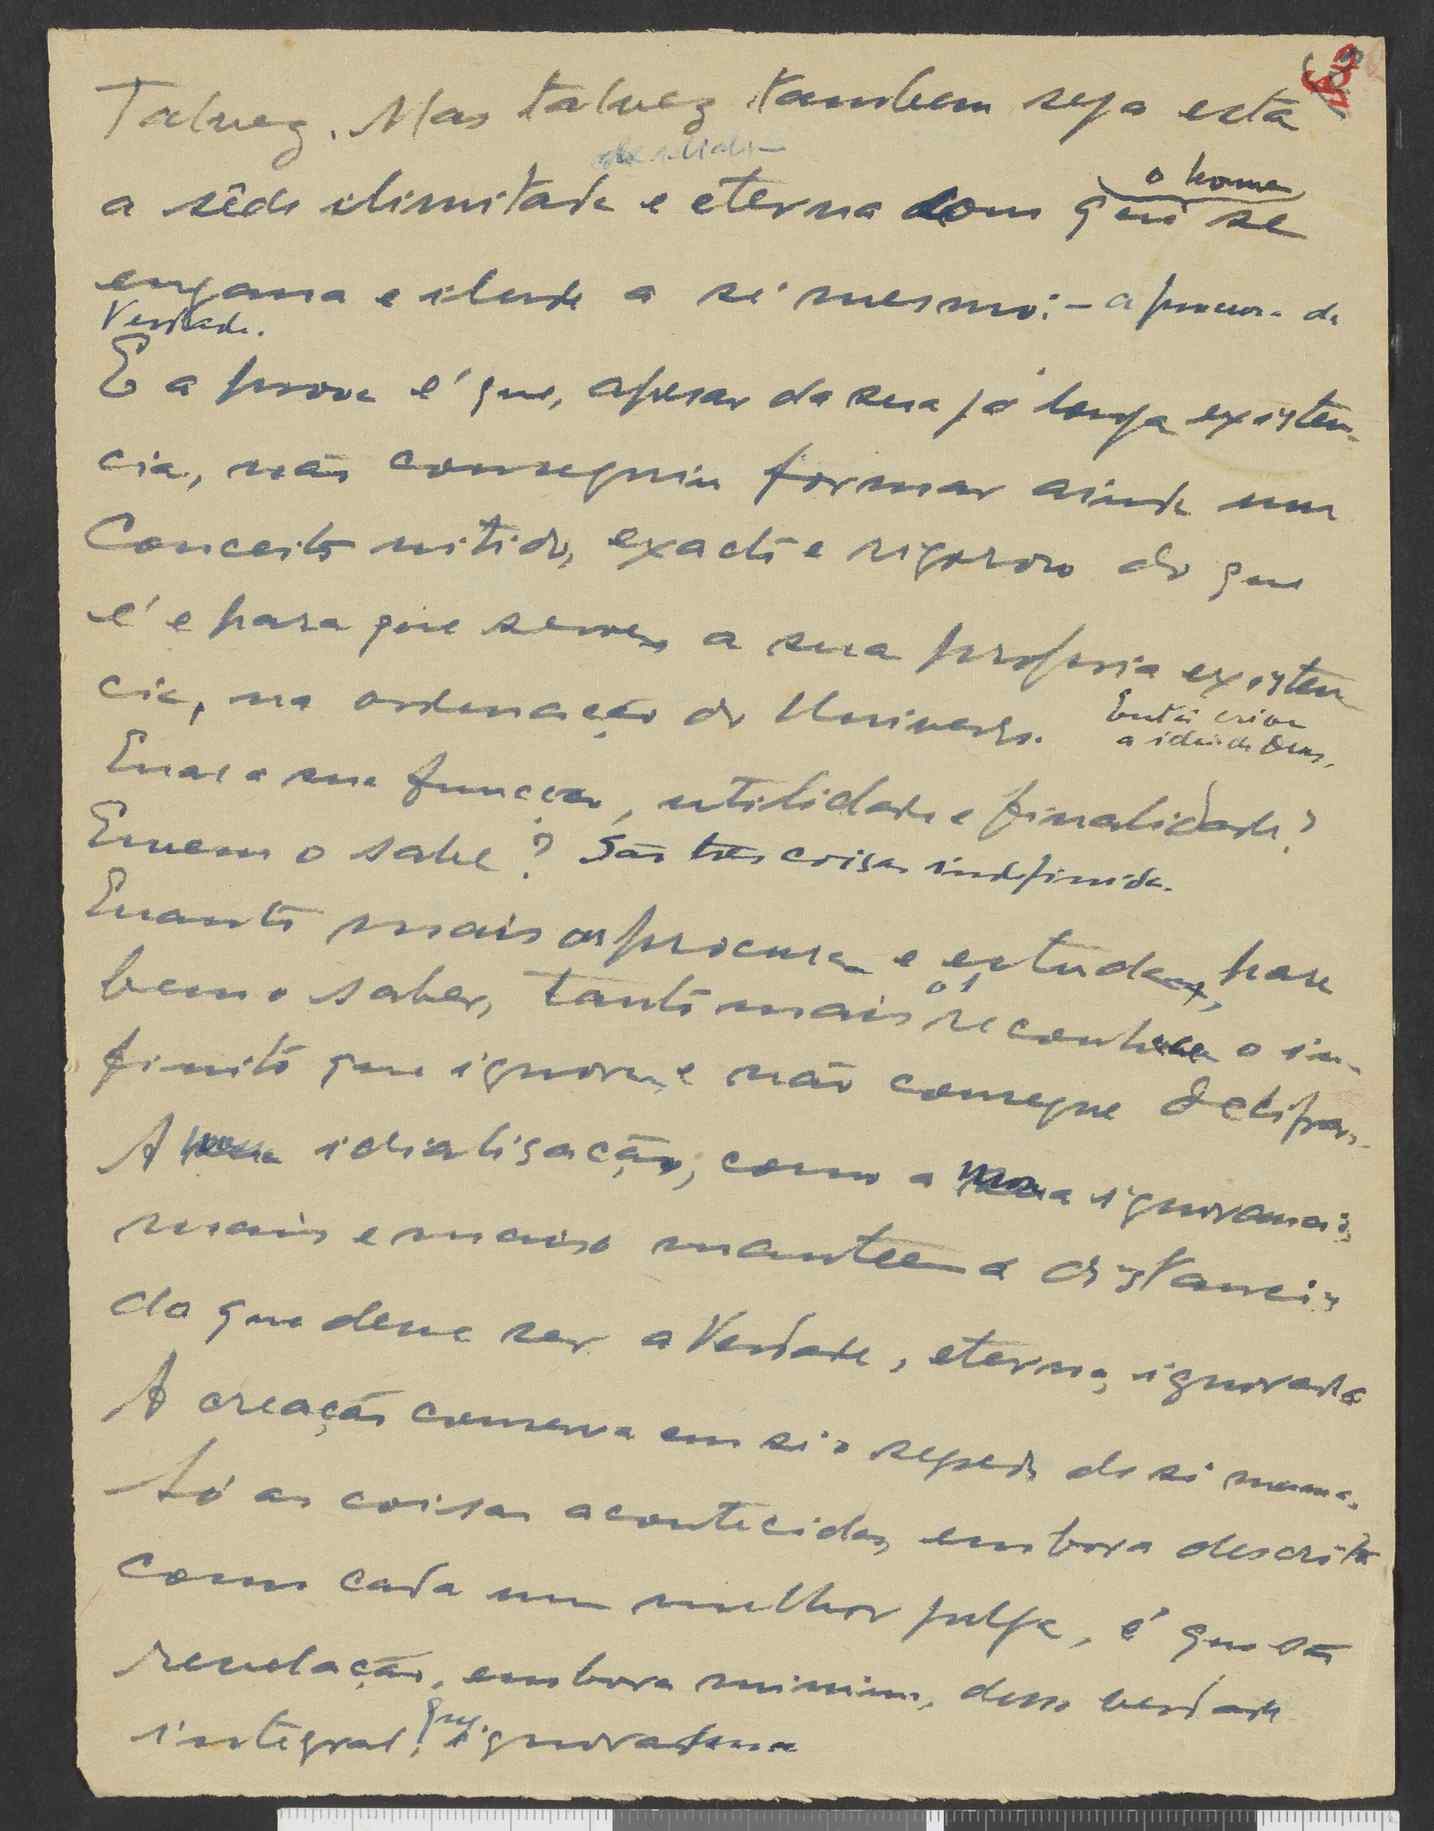 Talvez. Mas talvez tambem seja esta
a sêde ilimitada e eterna com que o homem se
engana e ilude a si mesmo: – a procura da
Verdade.
E a prova é que, apesar da sua já longa existen-
cia, não conseguiu formar ainda um
Conceito nitido, exacto e rigoroso do que
é e para que serve a sua propria existen
cia, na ordenação do Universo. Então criou
a ideia de Deus.
Qual a sua funcção, utilidade e finalidade?
Quem o sabe? São tres coisas indefinidas.
Quanto mais as procura e estuda, para
bem o saber, tanto mais reconhece o in-
finito que ignora, e não consegue decifrar.
A idialisação, como a ignorancia,
mais e mais o manteem á distancia
do que deve ser a Verdade, eterna, ignorada
A creação conserva em si o segredo de si mesma.
Só as coisas acontecidas, embora descritas
como cada um melhor julga, é que são
revelação, embora minima, dessa verdade
integral, que ignoramos